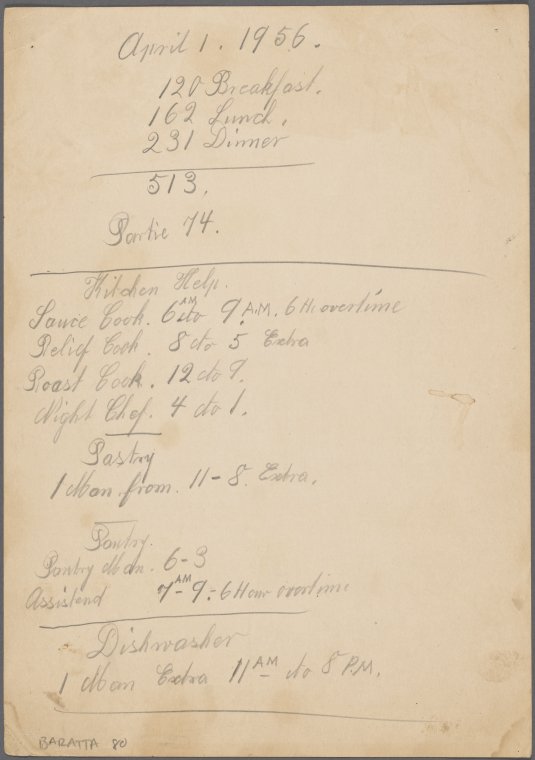 April 1. 1956.
120 Breakfast.
162 Lunch.
231 Dinner
513.
Partie 74.
Kitchen Help.
Sauce Cook. 6 AM to 9. A.M. 6 H. overtime
Relief Cook. 8 to 5 Extra
Roast Cook. 12 to 9.
Night Chef. 4 to 1.
Pastry
1 Man from. 11-8. Extra.
Pantry.
Pantry Man. 6-3
Assistend 7 AM - 9 - 6 Hour overtime
Dishwasher
1 Man Extra 11 AM - to 8 P.M.
BARATTA 80